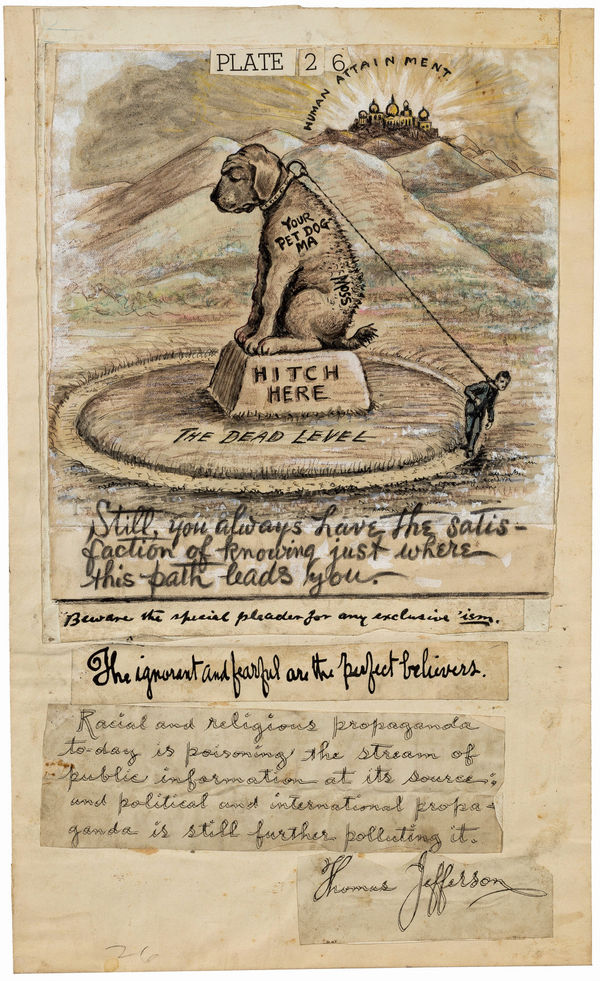 PLATE 26
HUMAN ATTAINMENT
YOUR
PET DOG
MA
MOSS
HITCH
HERE
THE DEAD LEVEL
Still, you always have the satis-
faction of knowing just where
this path leads you.
Beware the special pleader for any exclusive 'ism.
The ignorant and fearful are the perfect believers.
Racial and religious propaganda
to-day is poisoning the stream of
public information at its source;
and political and international propa-
ganda is still further polluting it.
Thomas Jefferson
26